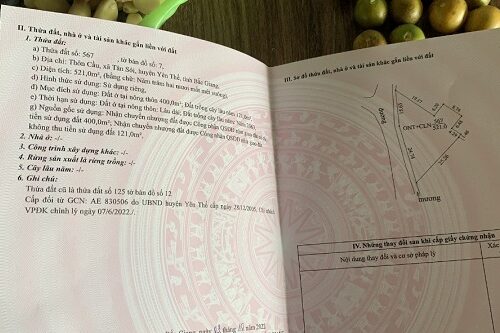 II. Thửa đất, nhà ở và tài sản khác gắn liền với đất
1. Thửa đất:
a) Thửa đất số: 567 , tờ bản đồ số: 7,
b) Địa chỉ: Thôn Cầu, xã Tân Sỏi, huyện Yên Thế, tỉnh Bắc Giang,
c) Diện tích: 521,0m², (bằng chữ: Năm trăm hai mươi mốt mét vuông),
d) Hình thức sử dụng: Sử dụng riêng,
đ) Mục đích sử dụng: Đất ở tại nông thôn 400,0m²; Đất trồng cây lâu năm 121,0m²,
e) Thời hạn sử dụng: Đất ở tại nông thôn: Lâu dài; Đất trồng cây lâu năm:
g) Nguồn gốc sử dụng: Nhận chuyển nhượng đất được Công nhận QSDĐ như giao đất có thu
tiền sử dụng đất 400,0m²; Nhận chuyển nhượng đất được Công nhận QSDĐ như giao đất
không thu tiền sử dụng đất 121,0m².
2. Nhà ở: -/-
3. Công trình xây dựng khác: -/-
4. Rừng sản xuất là rừng trồng: -/-
5. Cây lâu năm: -/-
6. Ghi chú:
Thửa đất cũ là thửa đất số 125 tờ bản đồ số 12
Cấp đổi từ GCN: AE 830506 do UBND huyện Yên Thế cấp ngày 28/12/2005, Chi nhánh
VPĐK chỉnh lý ngày 07/6/2022./.
Giang, ngày tháng năm 2022
III. Sơ đồ thửa đất, nhà ở và tài sản khác gắn liền với đất
đường
ONT+CLN
567
521.0
24.74
25.06
mương
IV. Những thay đổi sau khi cấp giấy chứng nhận
Nội dung thay đổi và cơ sở pháp lý
Xác